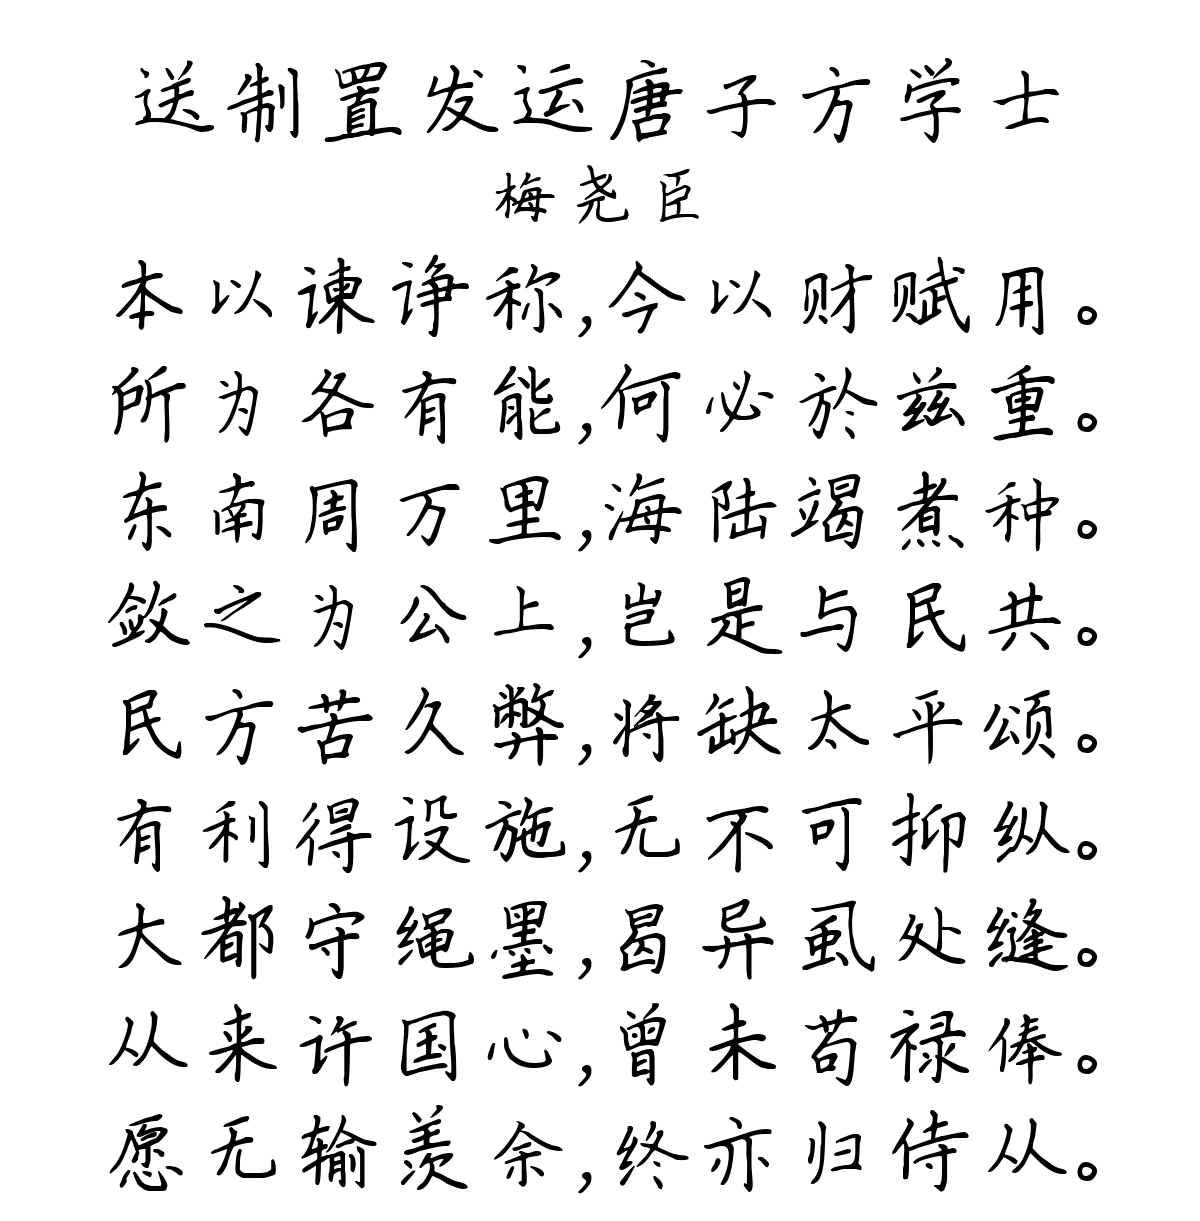 送制置发运唐子方学士
梅尧臣
本以谏诤称,今以财赋用。
所为各有能,何必於兹重。
东南周万里,海陆竭煮种。
敛之为公上,岂是与民共。
民方苦久弊,将缺太平颂。
有利得设施,无不可抑纵。
大都守绳墨,曷异虱处缝。
从来许国心,曾未苟禄俸。
愿无输羡余,终亦归侍从。